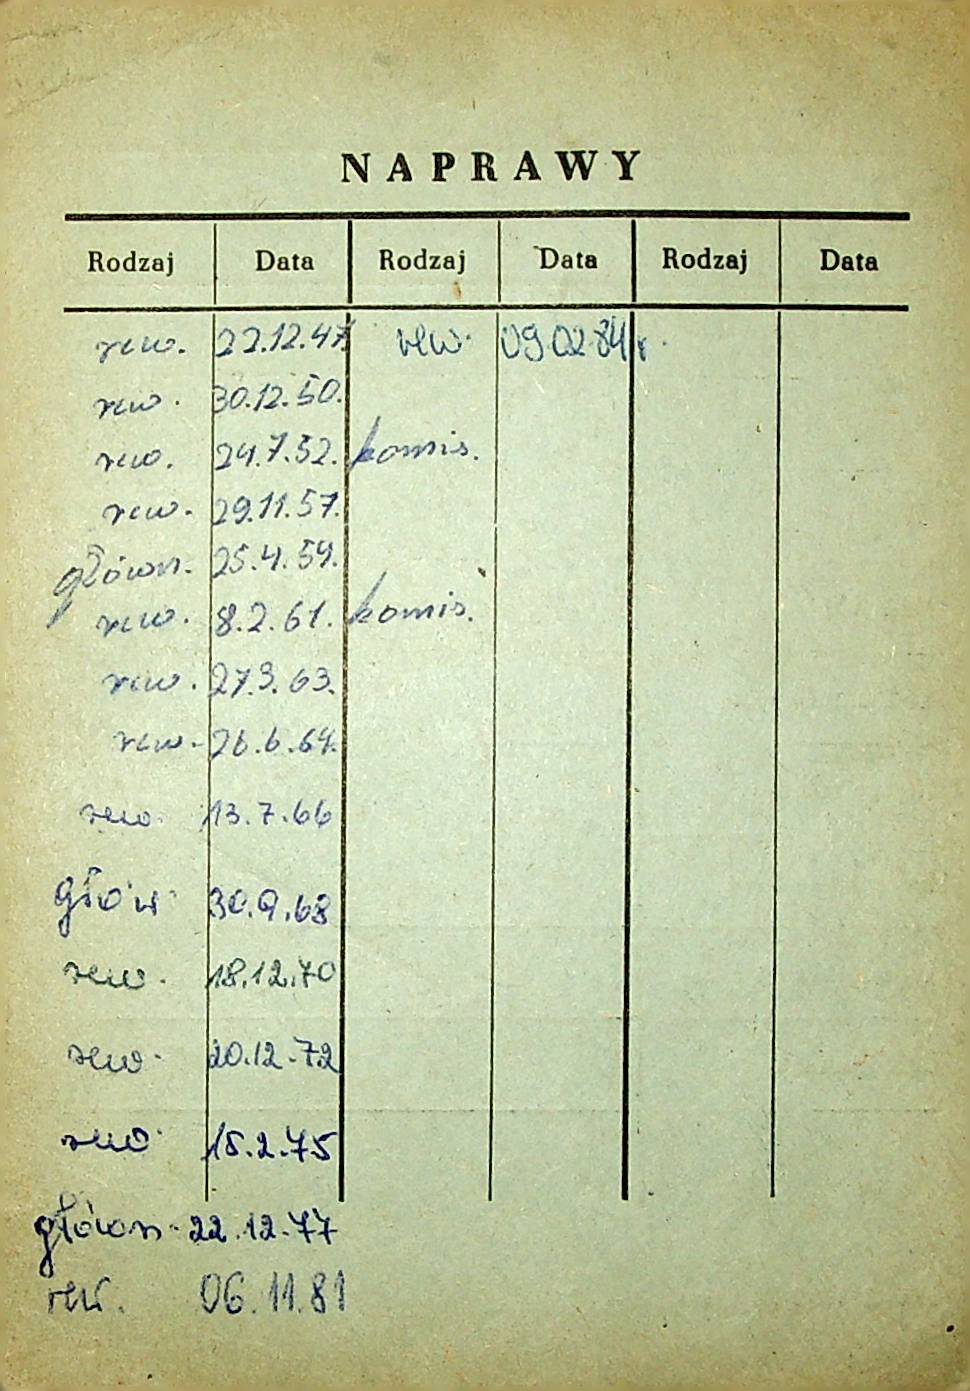 NAPRAWY
Rodzaj Data Rodzaj Data Rodzaj Data
rew. 22.12.47. rew. 09.02.84r.
rew. 30.12.50.
rew. 24.7.52. komis.
rew. 29.11.57.
główn. 25.4.59.
rew. 8.2.61. komis.
rew. 27.3.63.
rew. 26.6.64.
rew. 13.7.66
głów 30.9.68
rew. 18.12.70
rew. 20.12.72
rew. 15.2.75
główn. 22.12.77
rew. 06.11.81